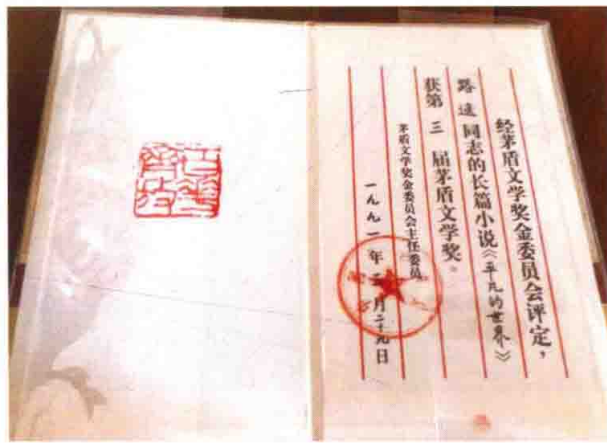 经茅盾文学奖金委员会评定，
路遥同志的长篇小说《平凡的世界》
获第三届茅盾文学奖。
茅盾文学奖金委员会主任委员
一九九一年 月二十九日